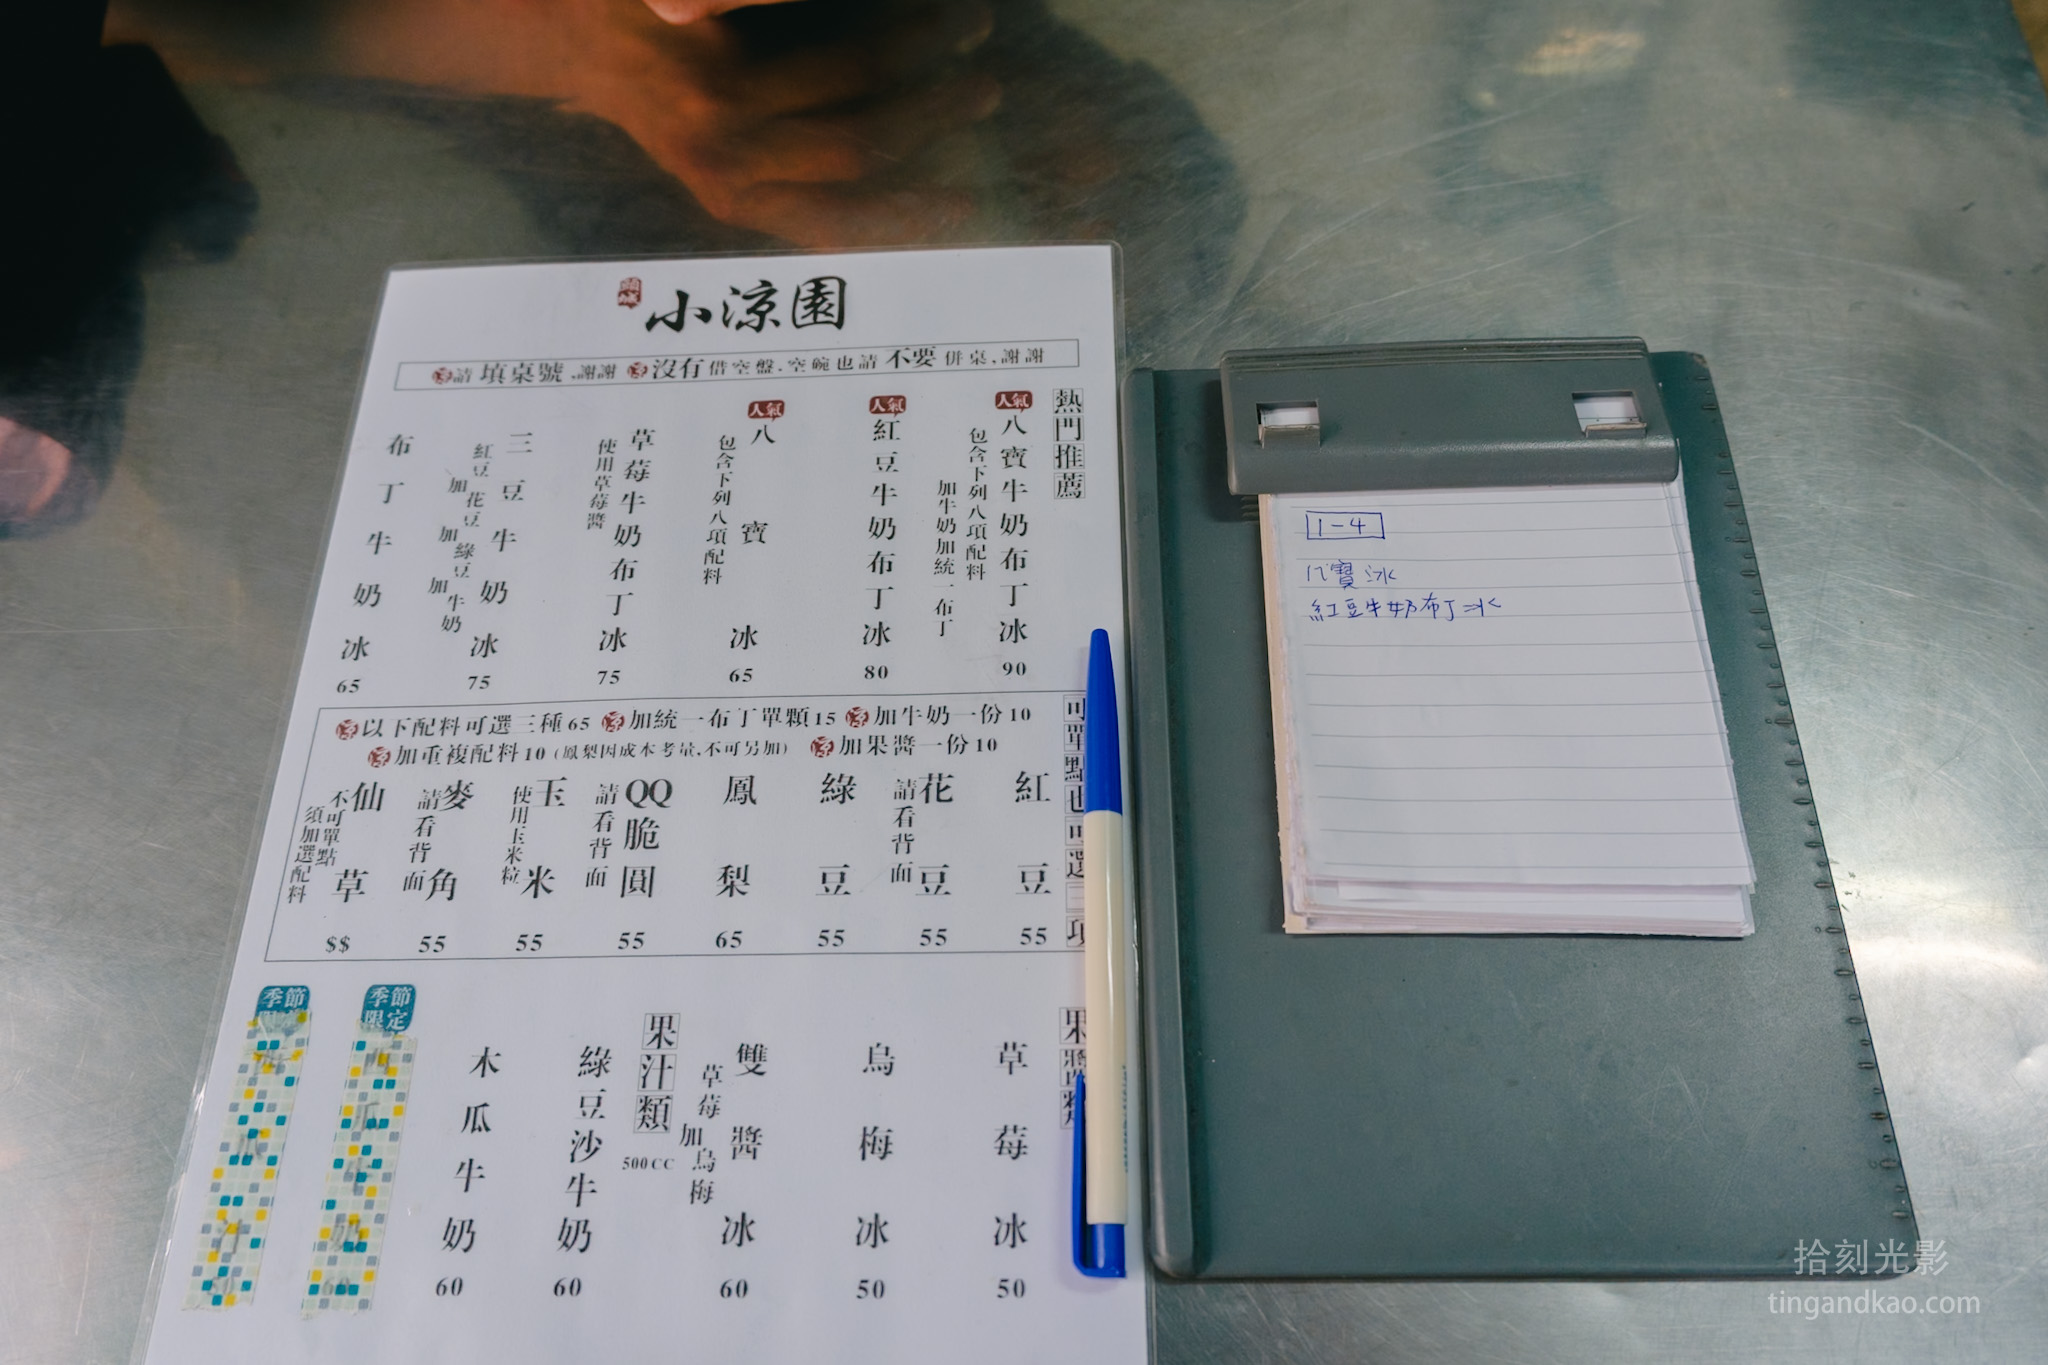 頭城
小涼園
請 填桌號 ,謝謝 沒有借空盤.空碗也請 不要 併桌,謝謝
熱門推薦
人氣
八寶牛奶布丁冰
包含下列八項配料
加牛奶加統一布丁
90
人氣
紅豆牛奶布丁冰
80
人氣
八寶冰
包含下列八項配料
65
草莓牛奶布丁冰
使用草莓醬
75
三豆牛奶冰
紅豆加花豆加綠豆加牛奶
75
布丁牛奶冰
65
可單點也可選三項
以下配料可選三種65 加統一布丁單顆15 加牛奶一份10
加重複配料10(鳳梨因成本考量,不可另加) 加果醬一份10
紅豆
55
花豆
請看背面
55
綠豆
55
鳳梨
65
QQ脆圓
請看背面
55
玉米
使用玉米粒
55
麥角
請看背面
55
仙草
不可單點
須加選配料
$$
果醬類
草莓冰
50
烏梅冰
50
雙醬冰
草莓加烏梅
60
果汁類
500CC
綠豆沙牛奶
60
木瓜牛奶
60
季節
限定
季節
1-4
八寶冰
紅豆牛奶布丁冰
拾刻光影
tingandkao.com